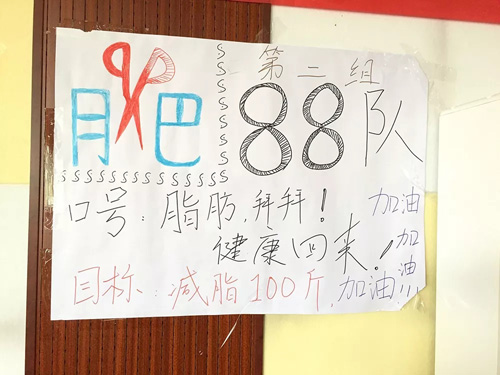 第二组
月巴 88队
口号:脂肪,拜拜! 加油
健康回来! 加
目标:减脂100斤,加油